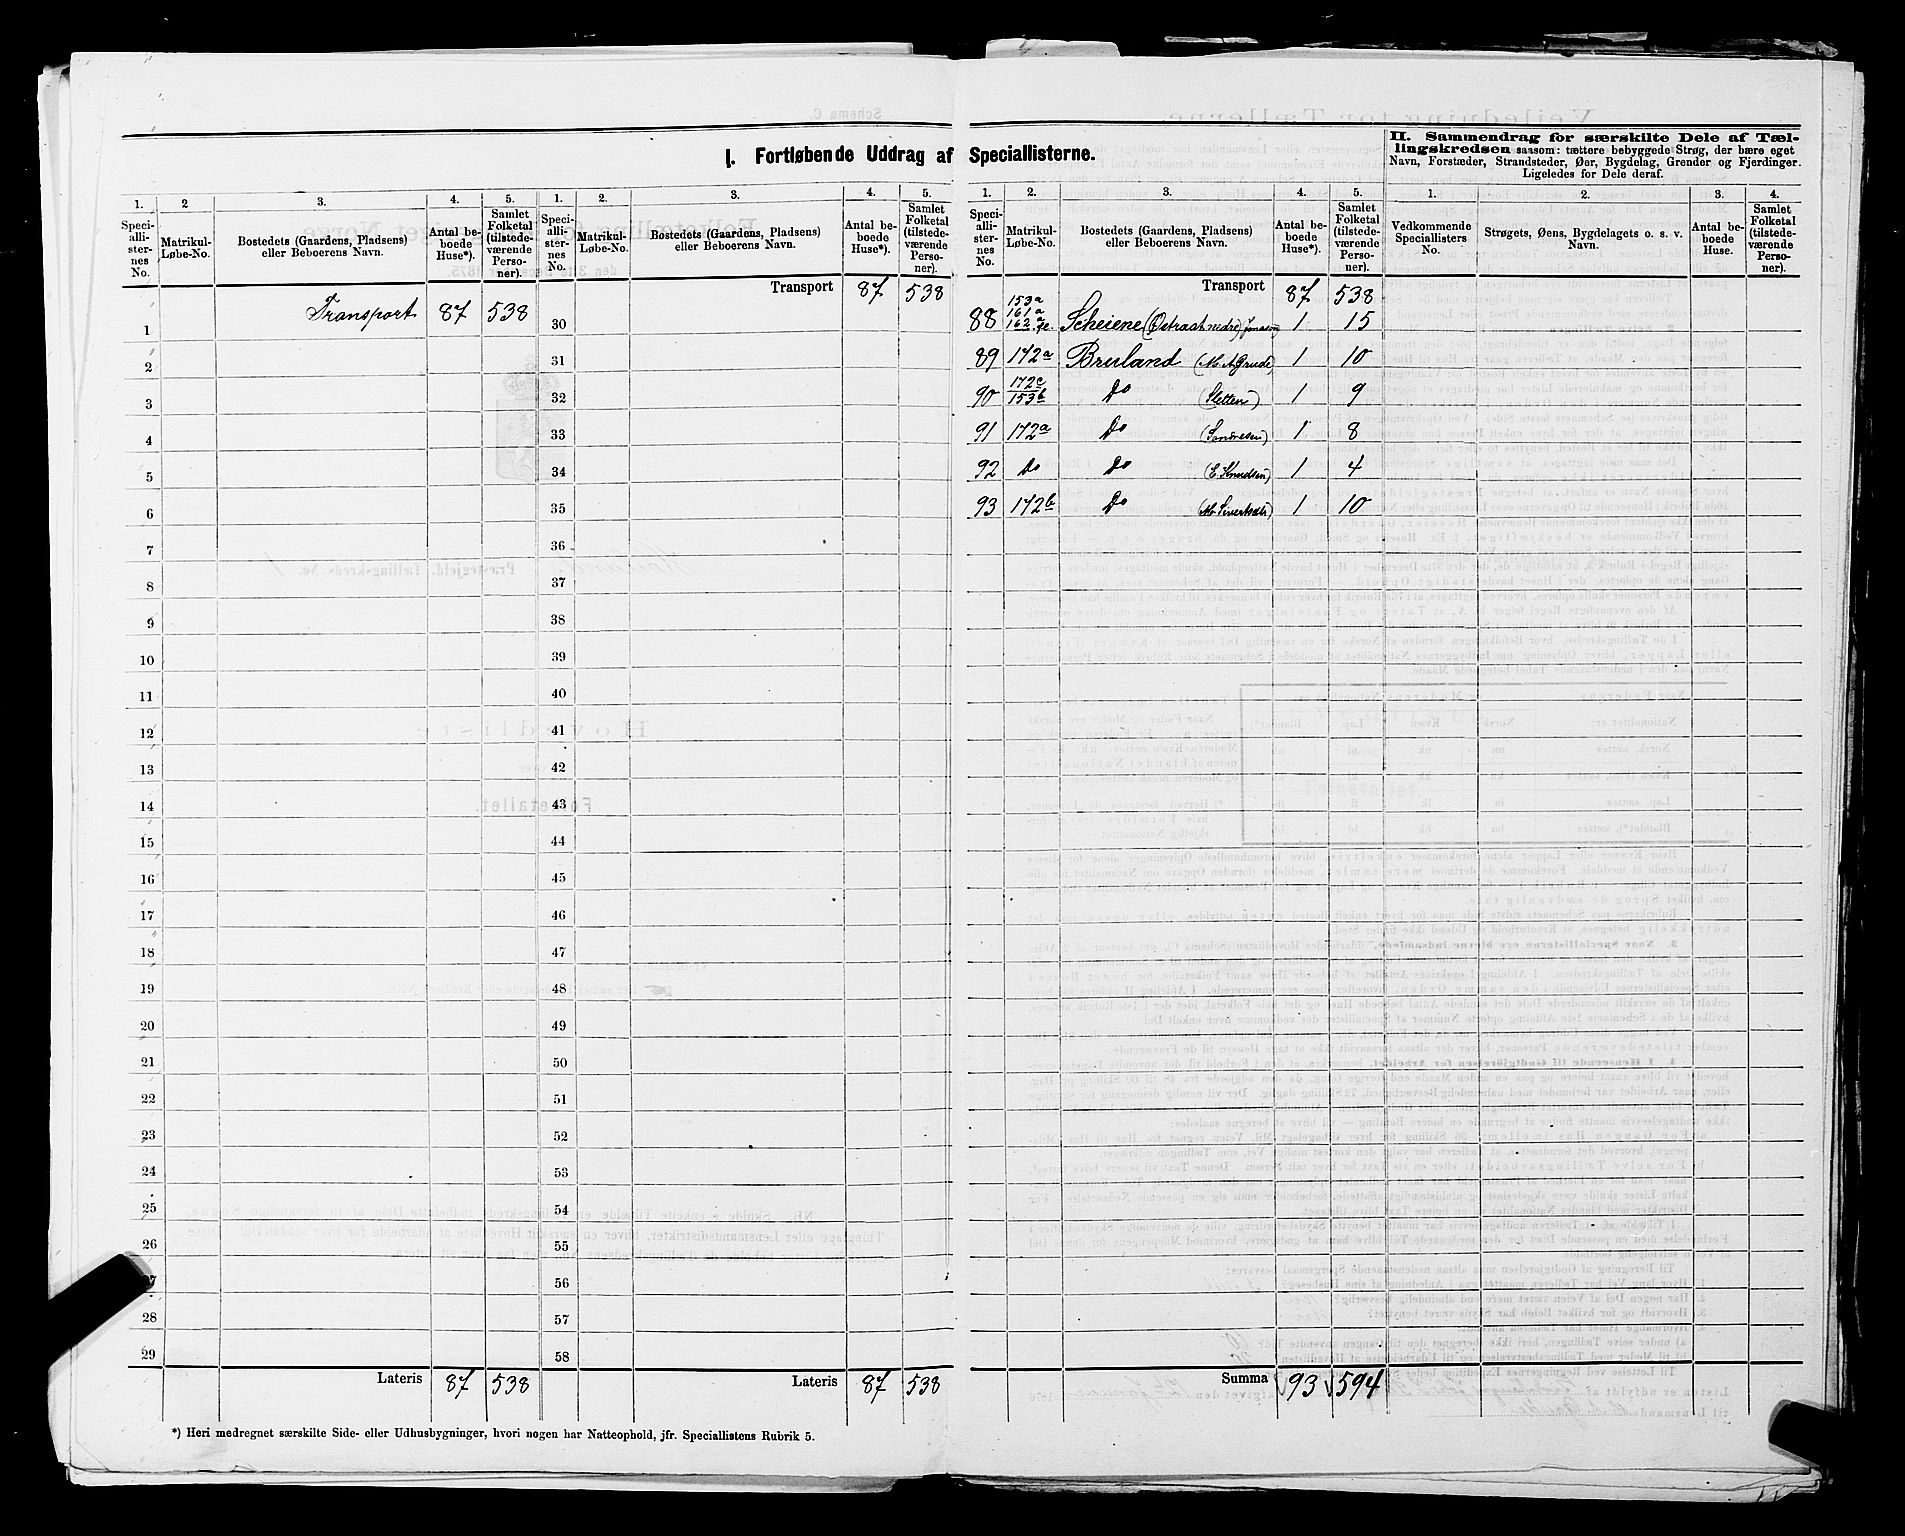 I. Fortløbende Uddrag af Speciallisterne.
II. Sammendrag for særskilte Dele af Tæl-
lingskredsen saasom: tættere bebyggede Strøg, der bære eget
Navn, Forstæder, Strandsteder, Øer, Bygdelag, Grender og Fjerdinger.
Ligeledes for Dele deraf.
1. 2 3. 4. 5. 1. 2. 3. 4. 5.
Speciallisternes No. Matrikul-Løbe-No. Bostedets (Gaardens, Pladsens) eller Beboerens Navn. Antal beboede Huse*). Samlet Folketal (tilstedeværende Personer). Speciallisternes No. Matrikul-Løbe-No. Bostedets (Gaardens, Pladsens) eller Beboerens Navn. Antal beboede Huse*). Samlet Folketal (tilstedeværende Personer).
Transport 87 538
1 Transport 87 538 30
2 31
3 32
4 33
5 34
6 35
7 36
8 37
9 38
10 39
11 40
12 41
13 42
14 43
15 44
16 45
17 46
18 47
19 48
20 49
21 50
22 51
23 52
24 53
25 54
26 55
27 56
28 57
29 58
Lateris 87 538 Lateris 87 538
*) Heri medregnet særskilte Side- eller Udhusbygninger, hvori nogen har Natteophold, jfr. Speciallistens Rubrik 5.
1. 2. 3. 4. 5. 1. 2. 3. 4.
Speciallisternes No. Matrikul-Løbe-No. Bostedets (Gaardens, Pladsens) eller Beboerens Navn. Antal beboede Huse*). Samlet Folketal (tilstedeværende Personer). Vedkommende Speciallisters No. Strøgets, Øens, Bygdelagets o. s. v. Navn. Antal beboede Huse. Samlet Folketal (tilstedeværende Personer).
Transport 87 538
88 153a 161a 162a Scheiene (Østraat nedre) 1 15
89 172a Bruland (M. A. Grude) 1 10
90 172c 153b Do (Sletten) 1 9
91 172a Do 1 8
92 Do Do (E Knudsen) 1 4
93 172b Do 1 10
Summa 93 594